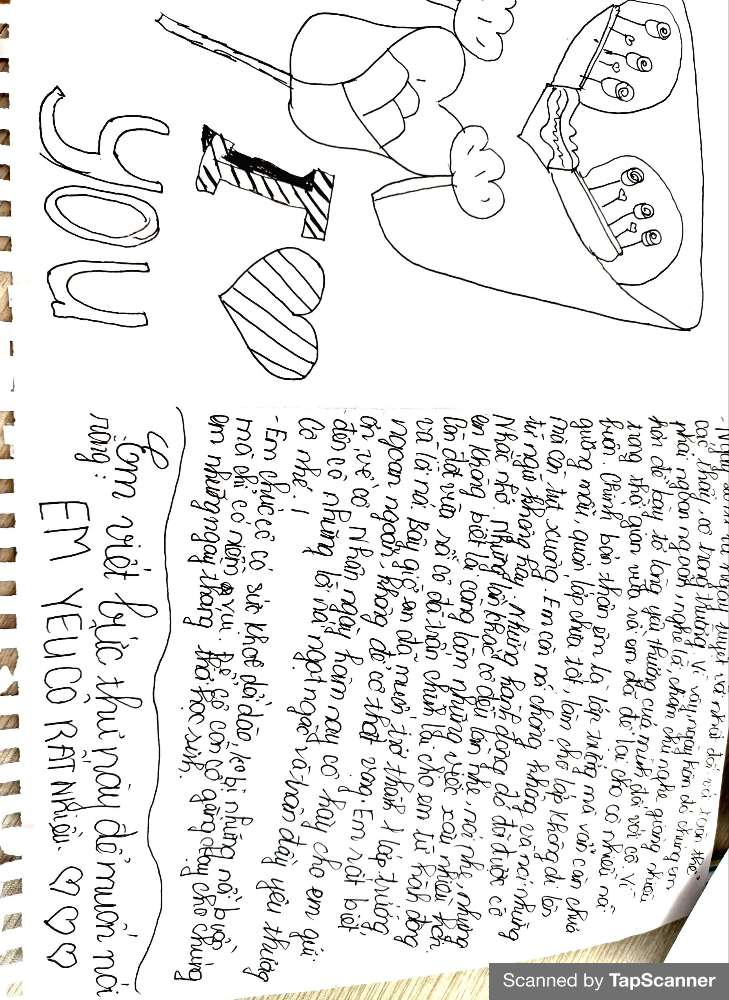 I
YOU
- Ngày 20-11 là ngày tuyệt và nhớ đối với toàn thể
các thầy, cô trong trường. Vì vậy, ngày hôm đó chúng em
phải ngoan ngoãn, nghe lời, chăm chú nghe giảng nhiều
hơn để bày tỏ lòng yêu thương của mình đối với cô. Vì
trong thời gian vừa rồi em đã để lại cho cô nhiều nỗi
buồn. Chính bản thân em là lớp trưởng mà vẫn chưa
gương mẫu, quản lớp chưa tốt, làm cho lớp không đi lên
mà còn tụt xuống. Em còn nó chống không và nói những
từ ngữ không hay. Những hành động đó đã được cô
nhắc nhở. Những lần khác cô đều lần nhẹ, nói nhẹ, nhưng
em không biết lại càng làm những việc xảy nhiều hơn.
Lần đó vừa rồi cô đã trấn chỉnh lại cho em từ hành động
và lời nó. Bây giờ em đã muốn trở thành 1 lớp trưởng
ngoan ngoãn, không để cô thất vọng. Em rất biết
ơn về cô. Nhân ngày hôm nay cô hãy cho em gửi
đến cô những lời nó ngọt ngào và tràn đầy yêu thương
Cô nhé !
- Em chúc cô có sức khoẻ dồi dào, ko bị những nỗi buồn
mà chỉ có niềm vui. Để cô còn cố gắng dạy cho chúng
em những ngày tháng thời học sinh.
Em viết bực thư này để muốn nói
rằng:
EM YÊU CÔ RẤT NHIỀU.
Scanned by TapScanner